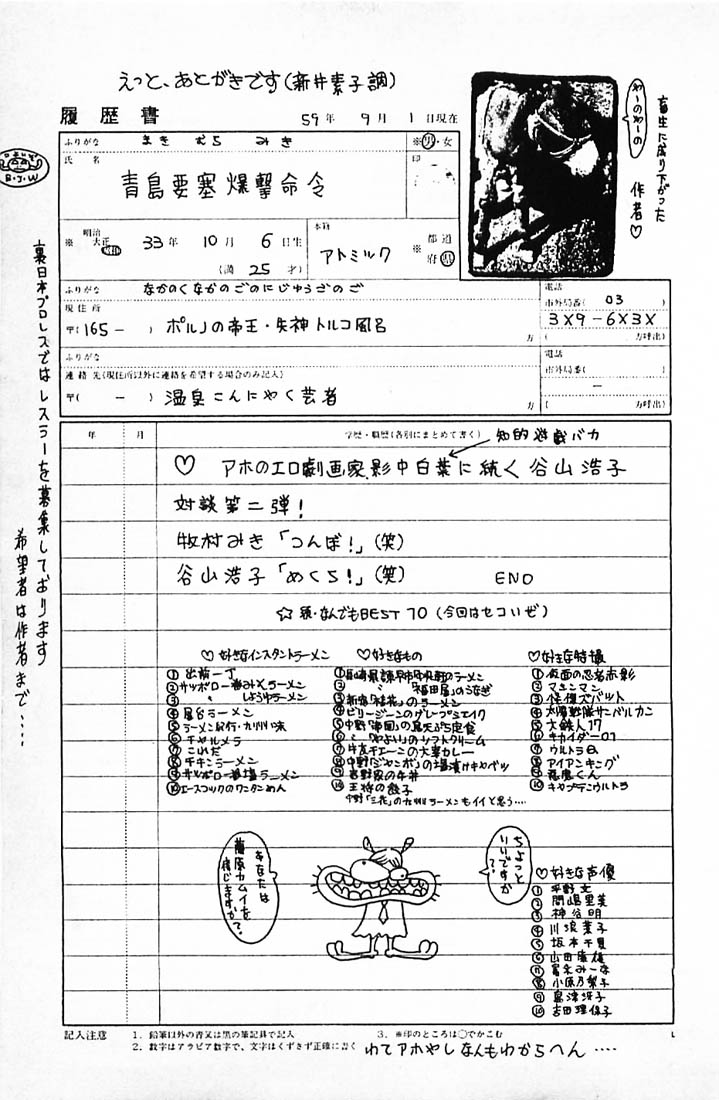 えっと、あとがきです(新井素子調)
履歴書
59年 9月 1日現在
ふりがな まき むら みき
※男・女
氏名
印
青島要塞爆撃命令
※
明治
大正
昭和
33年 10月 6日生
(満 25 才)
本籍
アトミック
※
都道
府県
わーのわーの
作者♡
畜生に成り下がった
B・J・W
ふりがな なかのくなかのごのにじゅうごのご
現住所
〒(165- ) ポルノの帝王・失神トルコ風呂
方
電話
市外局番( 03
3X9-6X3X
( 方呼出)
ふりがな
連絡先(現住所以外に連絡を希望する場合のみ記入)
〒( - ) 温泉こんにゃく芸者
方
電話
市外局番( )
-
( 方呼出)
裏日本プロレスではレスラーを募集しております
希望者は作者まで‥‥
年 月 学歴・職歴(各別にまとめて書く)
知的遊戯バカ
♡ アホのエロ劇画家、影中白葉に続く谷山浩子
対談第二弾!
牧村みき「つんぼ!」(笑)
谷山浩子「めくら!」(笑) END
☆続・なんでもBEST10(今回はセコいぜ)
♡好きなインスタントラーメン
①出前一丁
②サッポロ一番みそラーメン
③ 〃 しょうゆラーメン
④屋台ラーメン
⑤ラーメン紀行・九州味
⑥チャルメラ
⑦これだ
⑧チキンラーメン
⑨サッポロ一番塩ラーメン
⑩エースコックのワンタンめん
♡好きなもの
①長崎県諫早市中央軒のラーメン
② 〃 「福田屋」のうなぎ
③新宿「桂花」のラーメン
④ビリージーンのグレープシェイク
⑤中野「南国」の鳥天ぷら定食
⑥ 〃 「やよい」のソフトクリーム
⑦牛友チェーンの大辛カレー
⑧中野「ジャンボ」の塩漬けキャベツ
⑨吉野家の牛丼
⑩王将の餃子
中野「三花」の九州ラーメンもイイと思う‥‥
♡好きな特撮
①仮面の忍者赤影
②マシンマン
③怪傑ズバット
④太陽戦隊サンバルカン
⑤大鉄人17
⑥キカイダー01
⑦ウルトラQ
⑧アイアンキング
⑨悪魔くん
⑩キャプテンウルトラ
あなたは
藤原カムイを
信じますか?
ちょっと
いいですか?
♡好きな声優
①平野文
②間嶋里美
③神谷明
④川浪葉子
⑤坂本千夏
⑥山田康雄
⑦冨永みーな
⑧小原乃梨子
⑨島津冴子
⑩吉田理保子
記入注意
1. 鉛筆以外の青又は黒の筆記具で記入
3. ※印のところは○でかこむ
2. 数字はアラビア数字で、文字はくずさず正確に書く
わてアホやしなんもわからへん‥‥